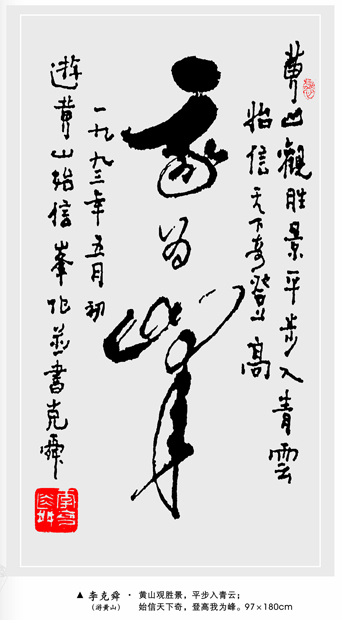 黄山觀胜景平步入青雲
始信天下奇登高
我为峯
一九九三年五月初
遊黄山始信峯作並書克舜
▲ 李克舜 · 黄山观胜景，平步入青云；
（游黄山） 始信天下奇，登高我为峰。97×180cm